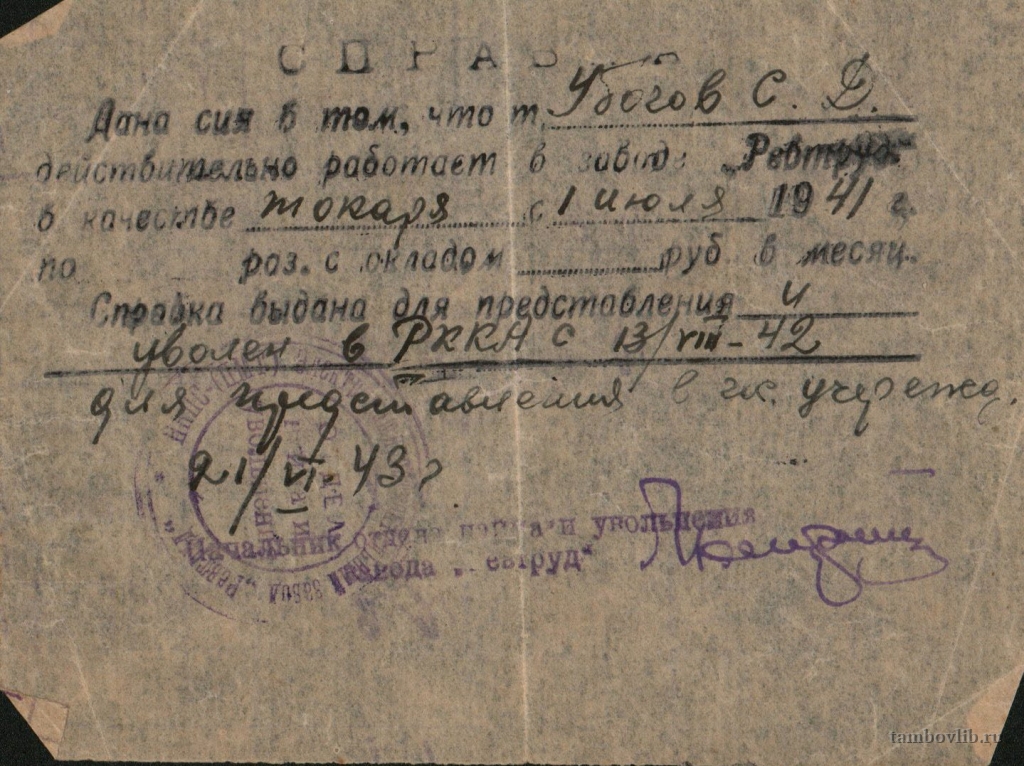 СПРАВКА
Дана сия в том, что т. Убогов С. Д.
действительно работает в заводе „Ревтруд"
в качестве токаря с 1 июля 1941 г.
по роз. с окладом руб в месяц.
Справка выдана для представления и
уволен в РККА с 13/VIII-42
для представления в учрежд.
21/VI-43 г
Начальник отдела найма и увольнения
завода „Ревтруд"
tambovlib.ru